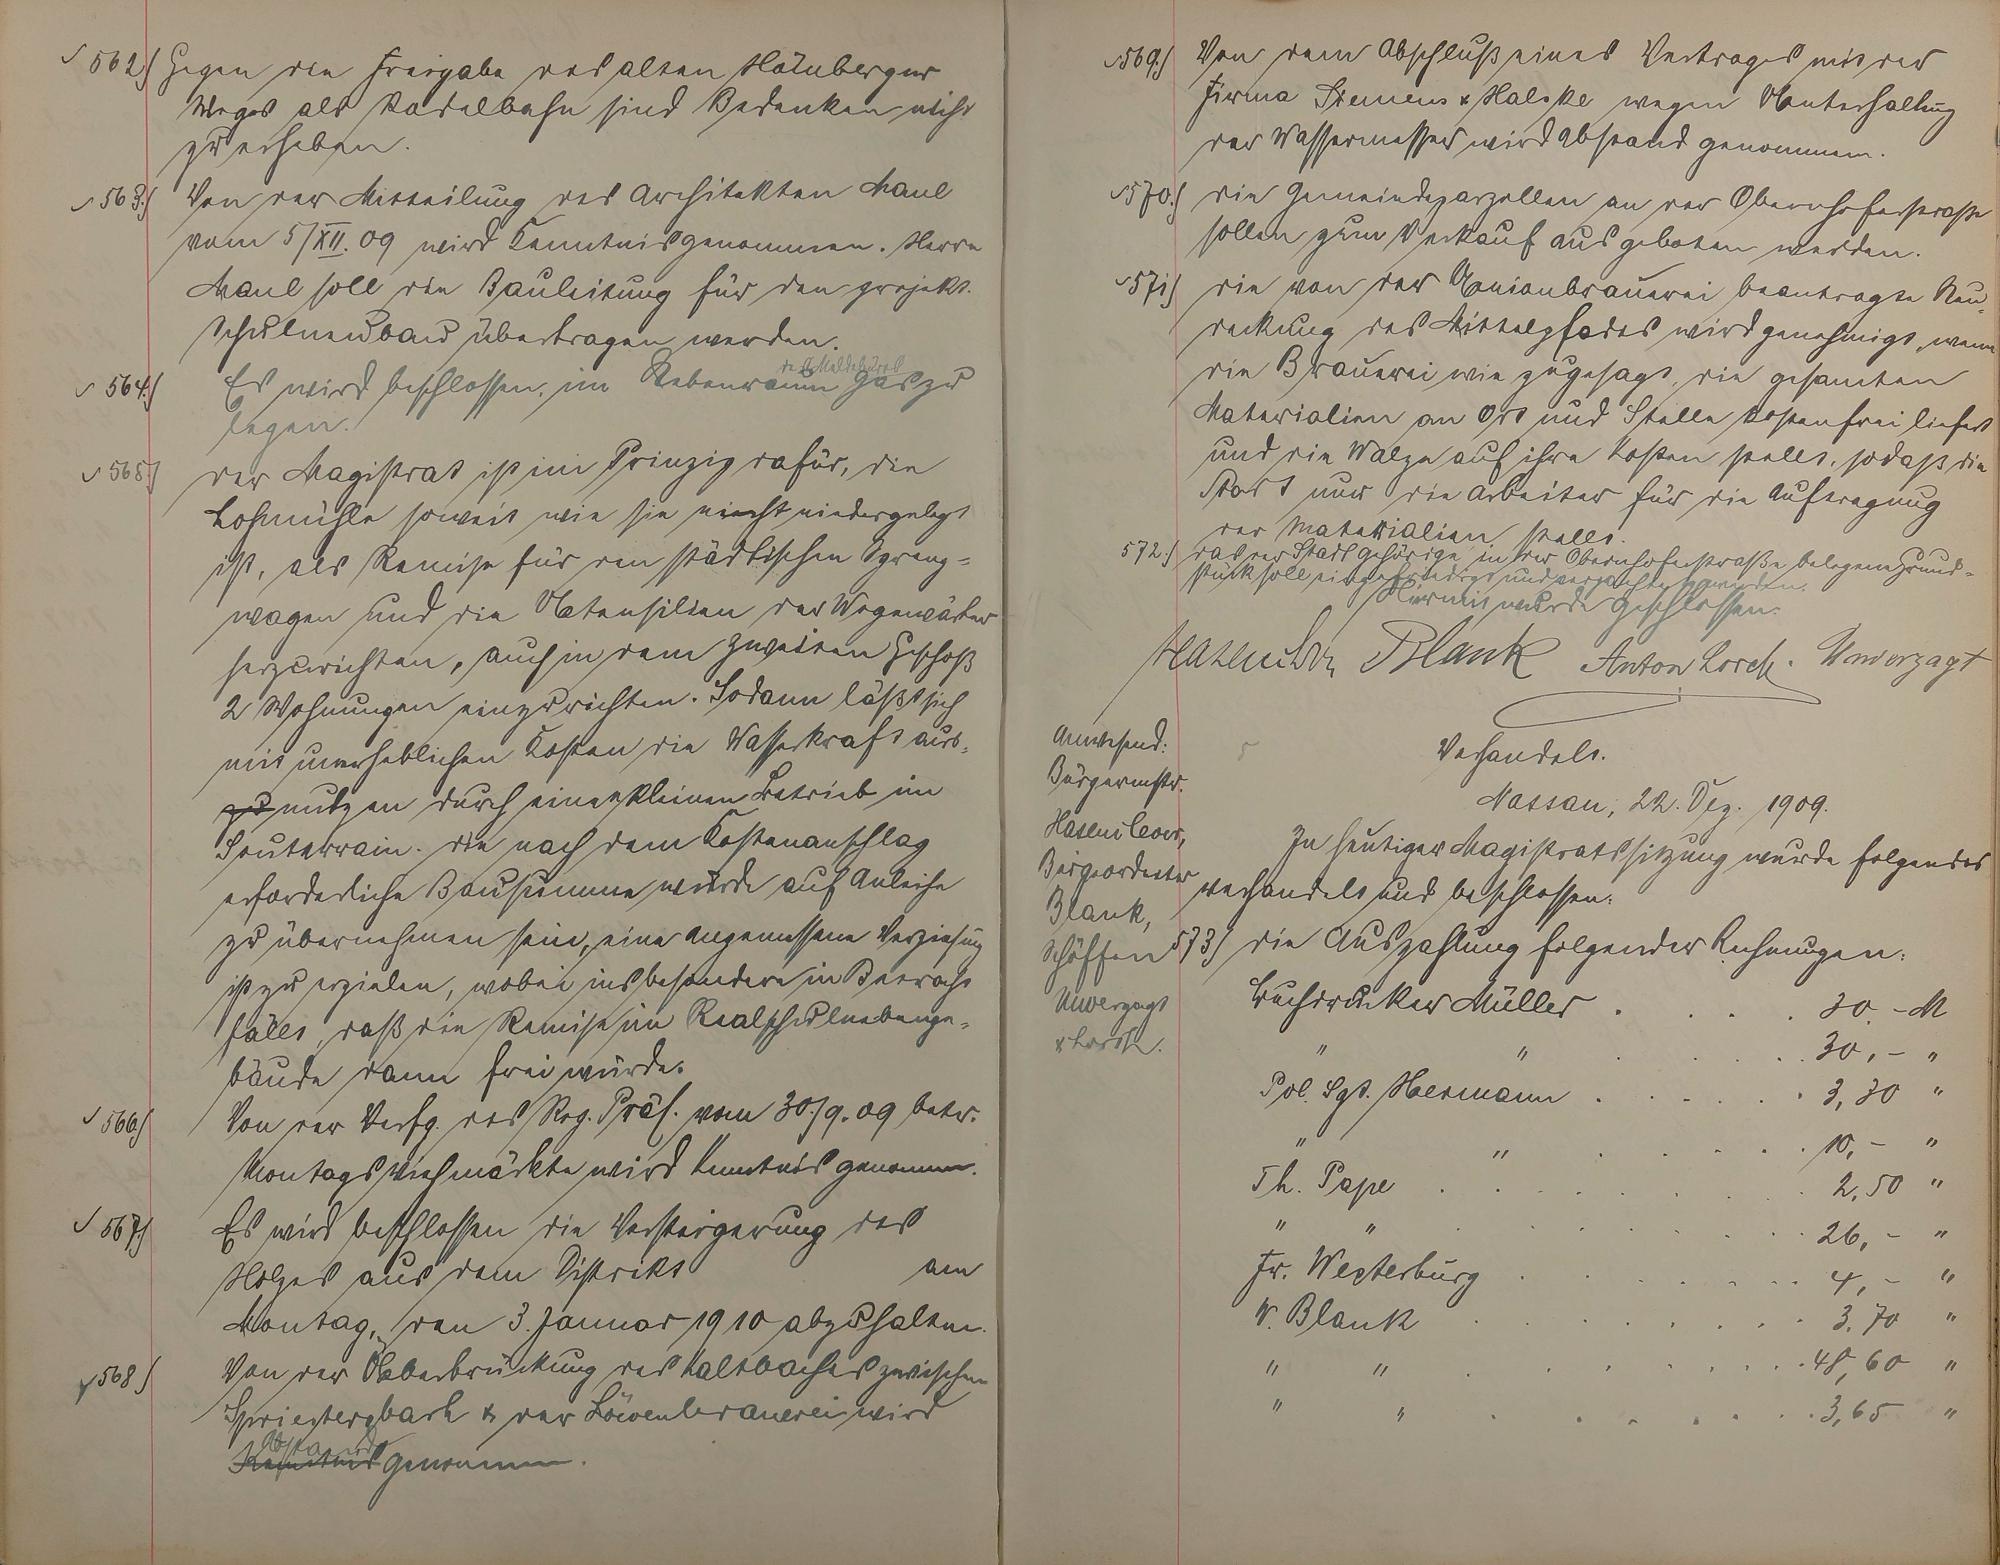 562.) Gegen die Freigabe des alten Hömberger
Weges als Rodelbahn sind Bedenken nicht
zu erheben.
563.) Von der Mitteilung des Architekten Maul
vom 5/XII. 09 wird Kenntnis genommen. Herrn
Maul soll die Bauleitung für den projekt.
Schulneubau übertragen werden.
564.) Es wird beschlossen, im Nebenraum des Meldebüros Gas zu
legen.
565.) Der Magistrat ist im Prinzip dafür, die
Lohmühle soweit wie sie nicht niedergelegt
ist, als Remise für den städtischen Spreng-
wagen und die Utensilien der Wegewärter
herzurichten, auch in dem zweiten Geschoß
2 Wohnungen einzurichten. Sodann läßt sich
mit unerheblichen Kosten die Wasserkraft aus-
zu nutzen durch einen kleinen Betrieb im
Souterrain. Die nach dem Kostenanschlag
erforderliche Bausumme würde auf Anleihe
zu übernehmen sein, eine angemessene Verzinsung
ist zu erzielen, wobei insbesondere in Betracht
fällt, daß die Remise im Realschulnebenge-
bäude dann frei würde.
566.) Von der Verfg. des Reg. Präs. vom 30./9. 09 betr.
Montagsviehmärkte wird Kenntnis genommen.
567.) Es wird beschlossen die Versteigerung des
Holzes aus dem Distrikt am
Montag, den 3. Januar 1910 abzuhalten.
568.) Von der Überbrückung des Kaltbaches zwischen
Spriestersbach & der Löwenbrauerei wird
Kenntnis Abstand genommen.
569.) Von dem Abschluß eines Vertrages mit der
Firma Siemens & Halske wegen Unterhaltung
der Wassermesser wird Abstand genommen.
570.) Die Gemeindeparzellen an der Obernhoferstraße
sollen zum Verkauf ausgeboten werden.
571.) Die von der Unionbrauerei beantragte Neu-
deckung des Mittelpfades wird genehmigt, wenn
die Brauerei wie zugesagt, die gesamten
Materialien an Ort und Stelle kostenfrei liefert
und die Walze auf ihre Kosten stellt, sodaß die
Stadt nur die Arbeiter für die Auftragung
der Materialien stellt.
572.) Das der Stadt gehörige in der Obernhoferstraße belegene Grund-
stück soll eingefriedigt und verpachtet werden.
Hiermit wurde geschlossen.
Hasenclever Blank Anton Lorch. Unverzagt
Verhandelt.
Nassau, 22. Dez. 1909.
Anwesend:
Bürgermstr.
Hasenclever,
Beigeordneter
Blank,
Schöffen
Unverzagt
& Lorch.
In heutiger Magistratssitzung wurde folgendes
verhandelt und beschlossen:
573.) Die Auszahlung folgender Rechnungen:
Buchdrucker Müller . . . . 30,- M
" " . . . . 30,- "
Pol. Sgt. Hermann . . . . . . 3,30 "
" " . . . . . 10,- "
Th. Pape . . . . . . . 2,50 "
" " . . . . . . 26,- "
Fr. Westerburg . . . . . . 4,- "
W. Blank . . . . . . . 3,70 "
" " . . . . . . 48,60 "
" " . . . . . . 3,65 "